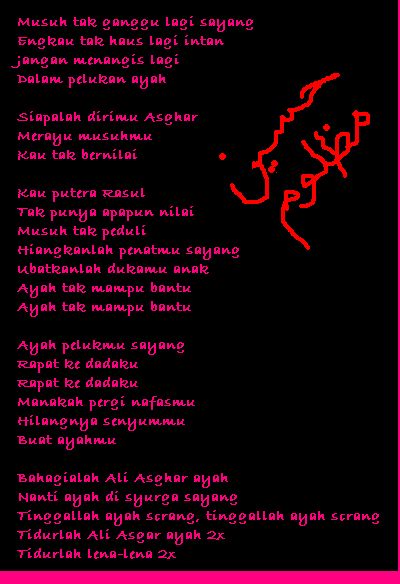 Musuh tak ganggu lagi sayang
Engkau tak haus lagi intan
jangan menangis lagi
Dalam pelukan ayah
Siapalah dirimu Asghar
Merayu musuhmu
Kau tak bernilai
Kau putera Rasul
Tak punya apapun nilai
Musuh tak peduli
Hiangkanlah penatmu sayang
Ubatkanlah dukamu anak
Ayah tak mampu bantu
Ayah tak mampu bantu
Ayah pelukmu sayang
Rapat ke dadaku
Rapat ke dadaku
Manakah pergi nafasmu
Hilangnya senyummu
Buat ayahmu
Bahagialah Ali Asghar ayah
Nanti ayah di syurga sayang
Tinggallah ayah sorang, tinggallah ayah sorang
Tidurlah Ali Asgar ayah 2x
Tidurlah lena-lena 2x